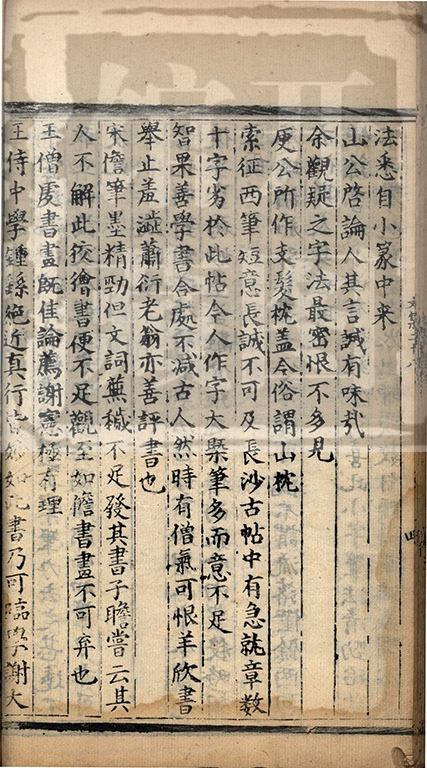 法悉自小篆中來
山公啓論人其言誠有味哉
余觀疑之字法最密恨不多見
庾公所作支髮枕盖今俗謂山枕
索征西筆短意長誠不可及長沙古帖中有急就章數
十字劣於此帖今人作字大槩筆多而意不足
智果善學書合處不减古人然時有僧氣可恨羊欣書
舉止羞澁蕭衍老翁亦善評書也
宋儋筆墨精勁但文詞蕪穢不足發其書子瞻嘗云其
人不解此狡獪書便不足觀至如儋書盡不可弃也
王僧虔書畫旣佳論薦謝憲極有理
王侍中學鍾繇絕近真行皆妙如此書乃可臨學謝大